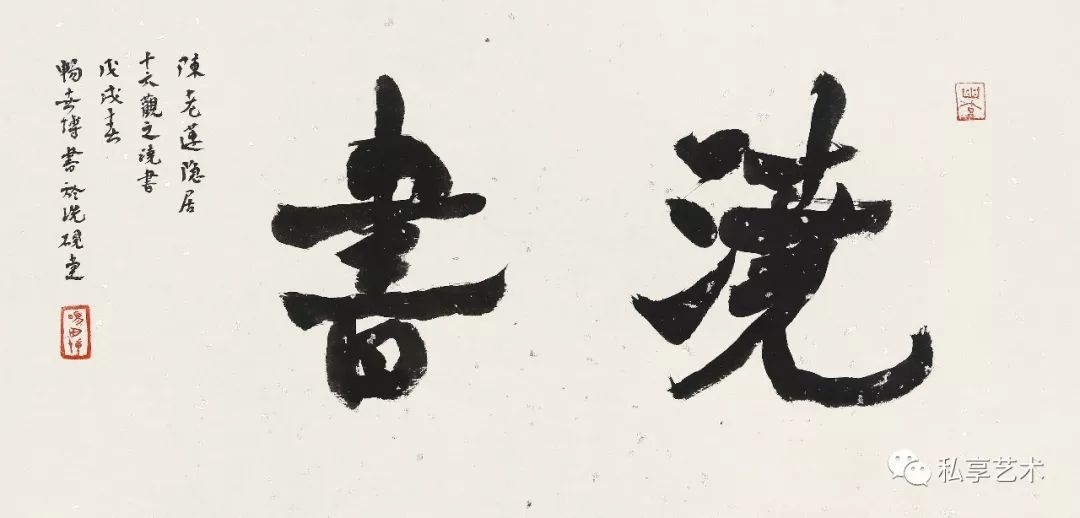 澆書
陳老蓮隱居
十六觀之澆書
戊戌春
博書於洗硯堂
私享艺术